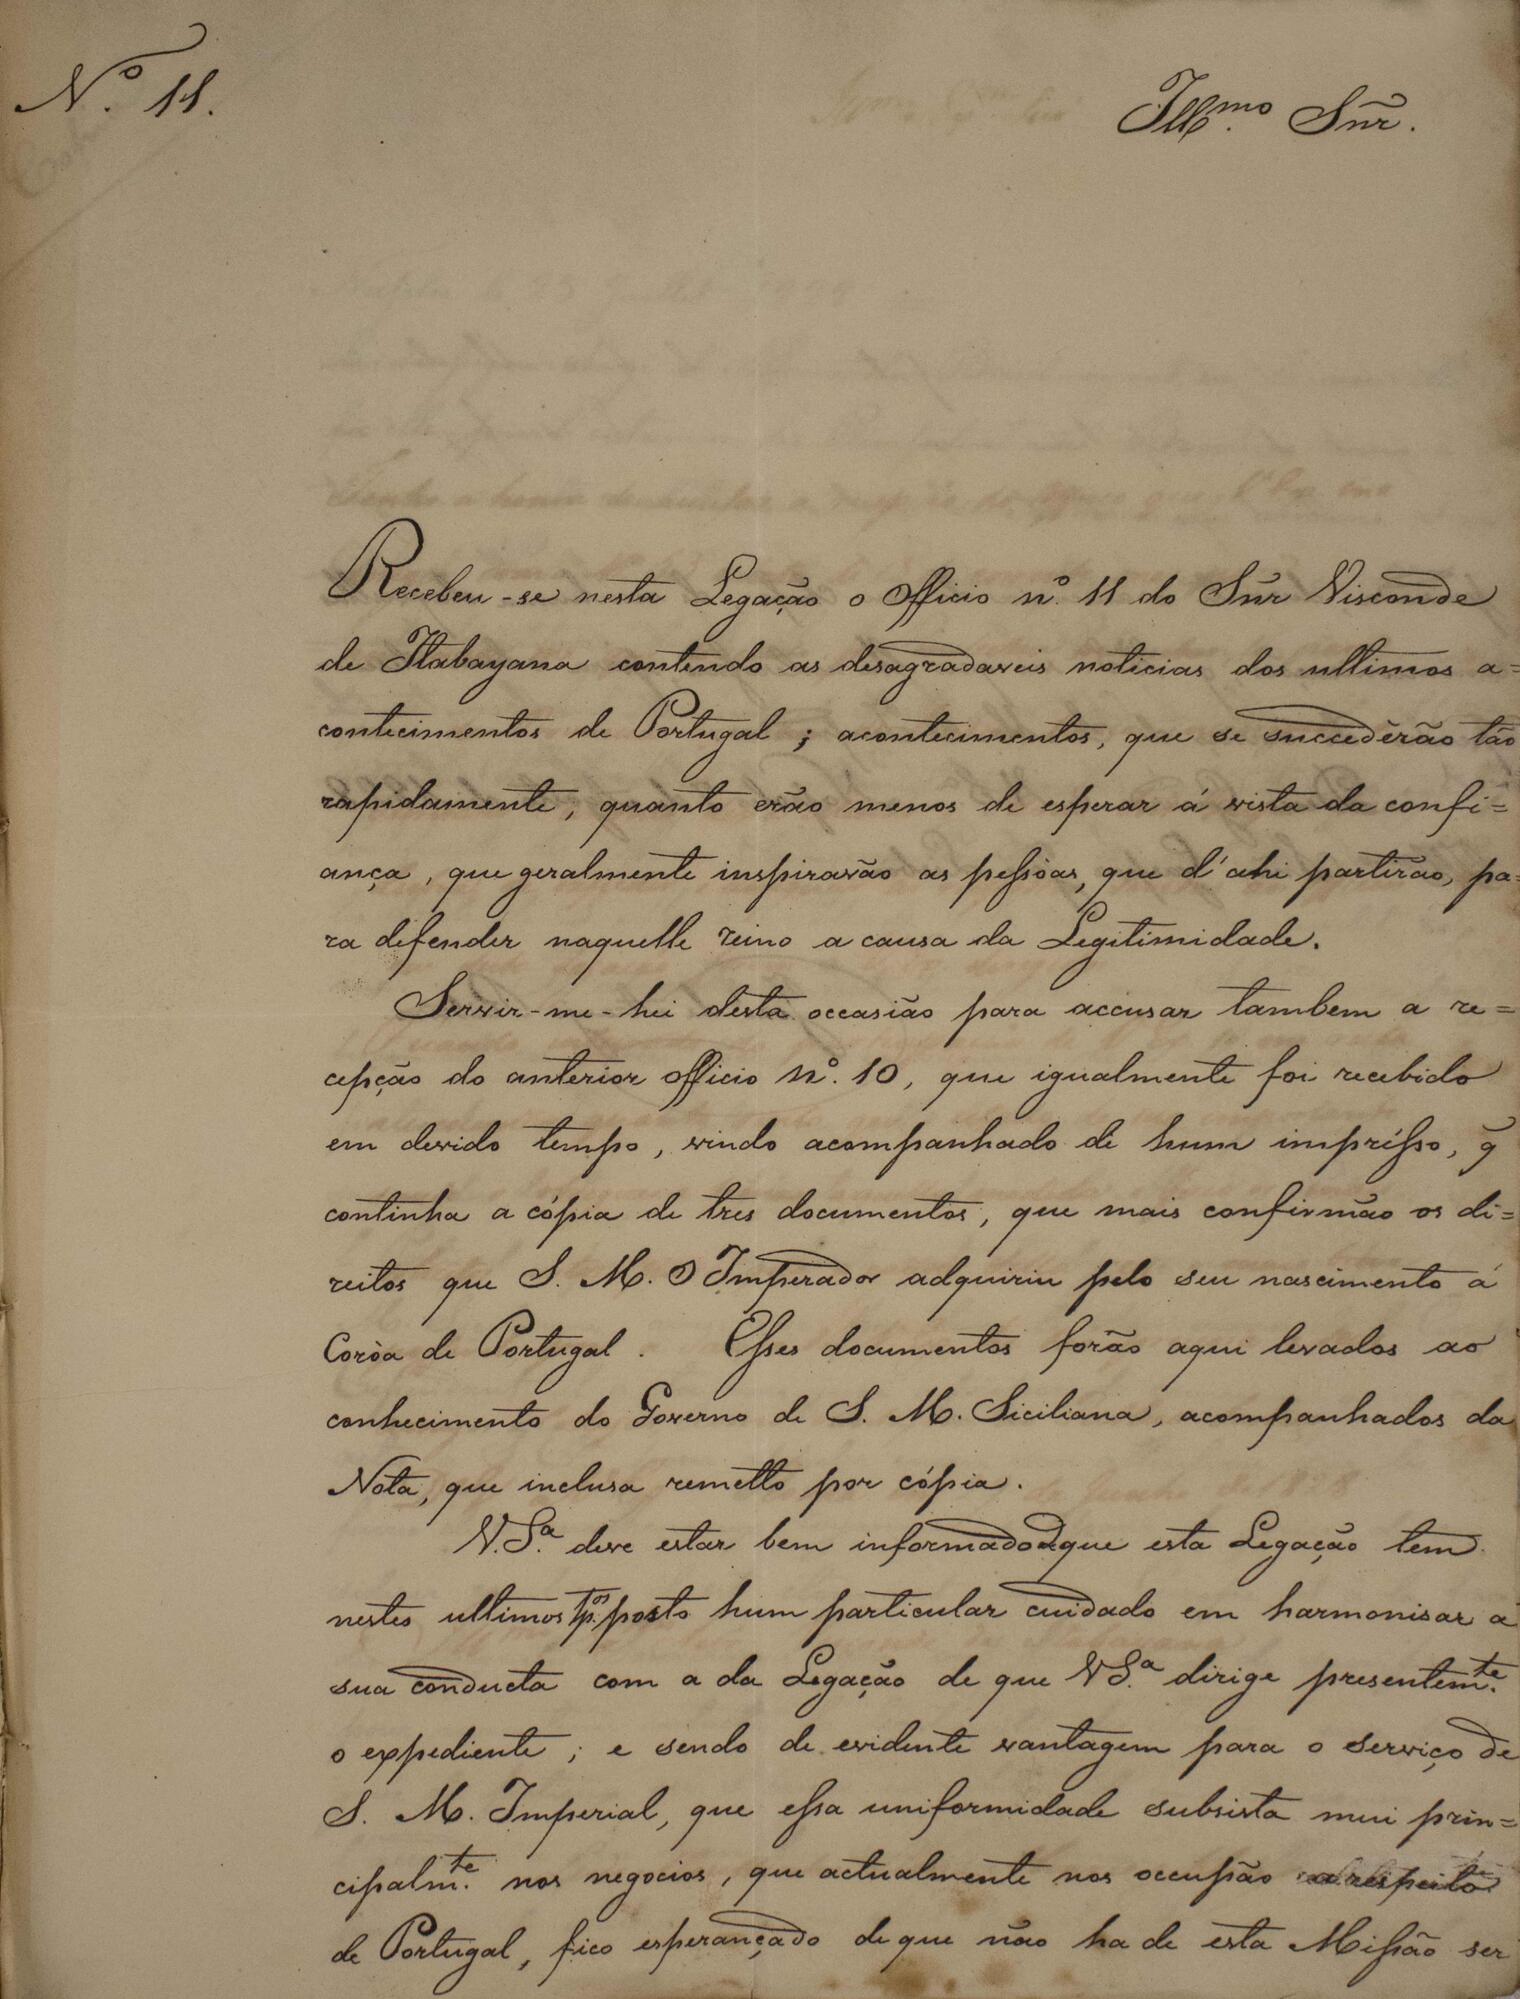 Nº. 11.
Illmo. Snr̃.
Recebeu-se nesta Legação o Officio nº. 11 do Sñr Visconde
de Itabayana contendo as desagradaveis noticias dos ultimos a=
contecimentos de Portugal; acontecimentos, que se succedêrão tão
rapidamente, quanto erão menos de esperar á vista da confi=
ança, que geralmente inspiravão as pessôas, que d'ahi partirão, pa=
ra defender naquelle reino a causa da Legitimidade.
Servir-me-hei desta occasião para accusar tambem a re=
cepção do anterior officio nº. 10, que igualmente foi recebido
em devido tempo, vindo acompanhado de hum imprésso, q̃
continha a cópia de tres documentos, que mais confirmão os di=
reitos que S. M. O Imperador adquirio pelo seu nascimento á
Corôa de Portugal. Esses documentos forão aqui levados ao
conhecimento do Governo de S. M. Siciliana, acompanhados da
Nota, que inclusa remetto por cópia.
V. Sª. deve estar bem informado de que esta Legação tem
nestes ultimos tpos. posto hum particular cuidado em harmonisar a
sua conducta com a da Legação de que V Sª. dirige presentemte.
o expediente; e sendo de evidente vantagem para o serviço de
S. M. Imperial, que essa uniformidade subsista mui prin=
cipalmte. nos negocios, que actualmente nos occupão a respeito
de Portugal, fico esperançado de que não ha de esta Missão ser